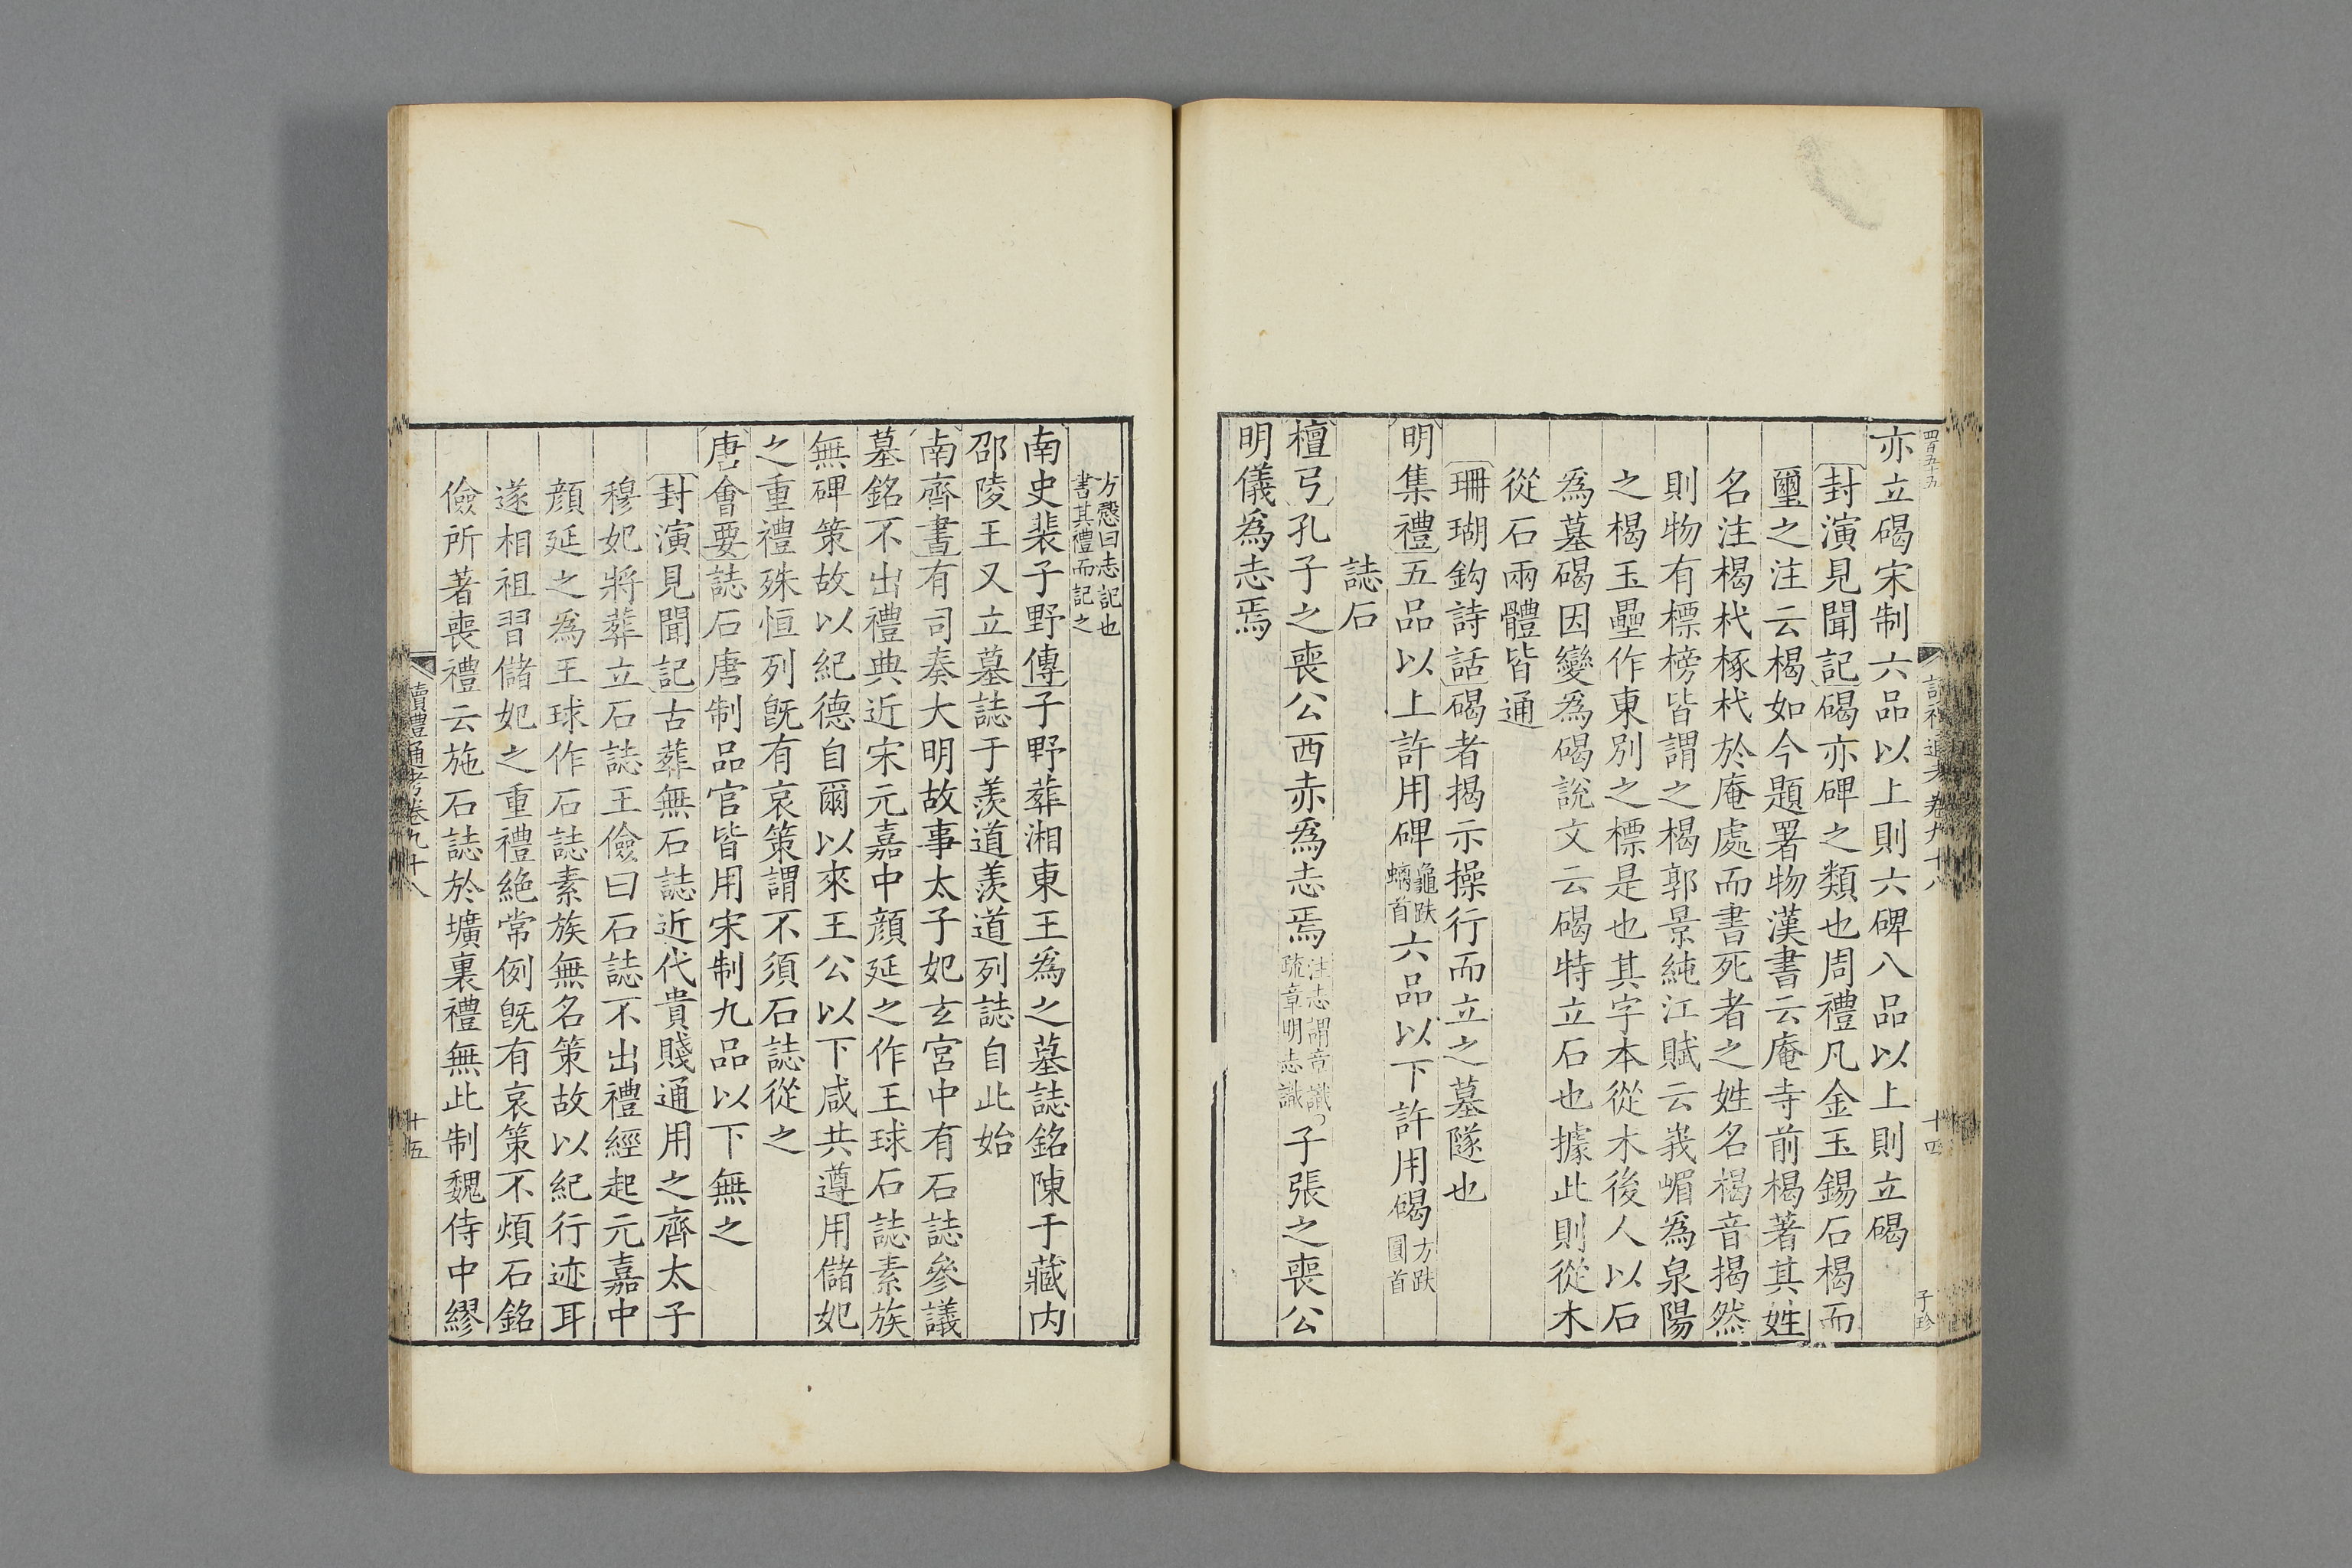 四百五十五
讀禮通考卷九十八
十四
子珍
亦立碣宋制六品以上則六碑八品以上則立碣
封演見聞記碣亦碑之類也周禮凡金玉錫石楬而
璽之注云楬如今題署物漢書云庵寺前楬著其姓
名注楬杙椓杙於庵處而書死者之姓名楬音揭然
則物有標榜皆謂之楬郭景純江賦云峩嵋爲泉陽
之楬玉壘作東別之標是也其字本從木後人以石
爲墓碣因變爲碣說文云碣特立石也據此則從木
從石兩體皆通
珊瑚鈎詩話碣者揭示操行而立之墓隧也
明集禮五品以上許用碑龜趺螭首六品以下許用碣方趺圓首
誌石
檀弓孔子之喪公西赤爲志焉注志謂章識疏章明志識○子張之喪公
明儀爲志焉
方慤曰志記也書其禮而記之
南史裴子野傳子野葬湘東王爲之墓誌銘陳于藏内
邵陵王又立墓誌于羨道羨道列誌自此始
南齊書有司奏大明故事太子妃玄宮中有石誌參議
墓銘不出禮典近宋元嘉中顔延之作王球石誌素族
無碑策故以紀德自爾以來王公以下咸共遵用儲妃
之重禮殊恒列旣有哀策謂不須石誌從之
唐會要誌石唐制品官皆用宋制九品以下無之
封演見聞記古葬無石誌近代貴賤通用之齊太子
穆妃將葬立石誌王儉曰石誌不出禮經起元嘉中
顔延之爲王球作石誌素族無名策故以紀行迹耳
遂相祖習儲妃之重禮絶常例旣有哀策不煩石銘
儉所著喪禮云施石誌於壙裏禮無此制魏侍中繆
讀禮通考卷九十八
十五